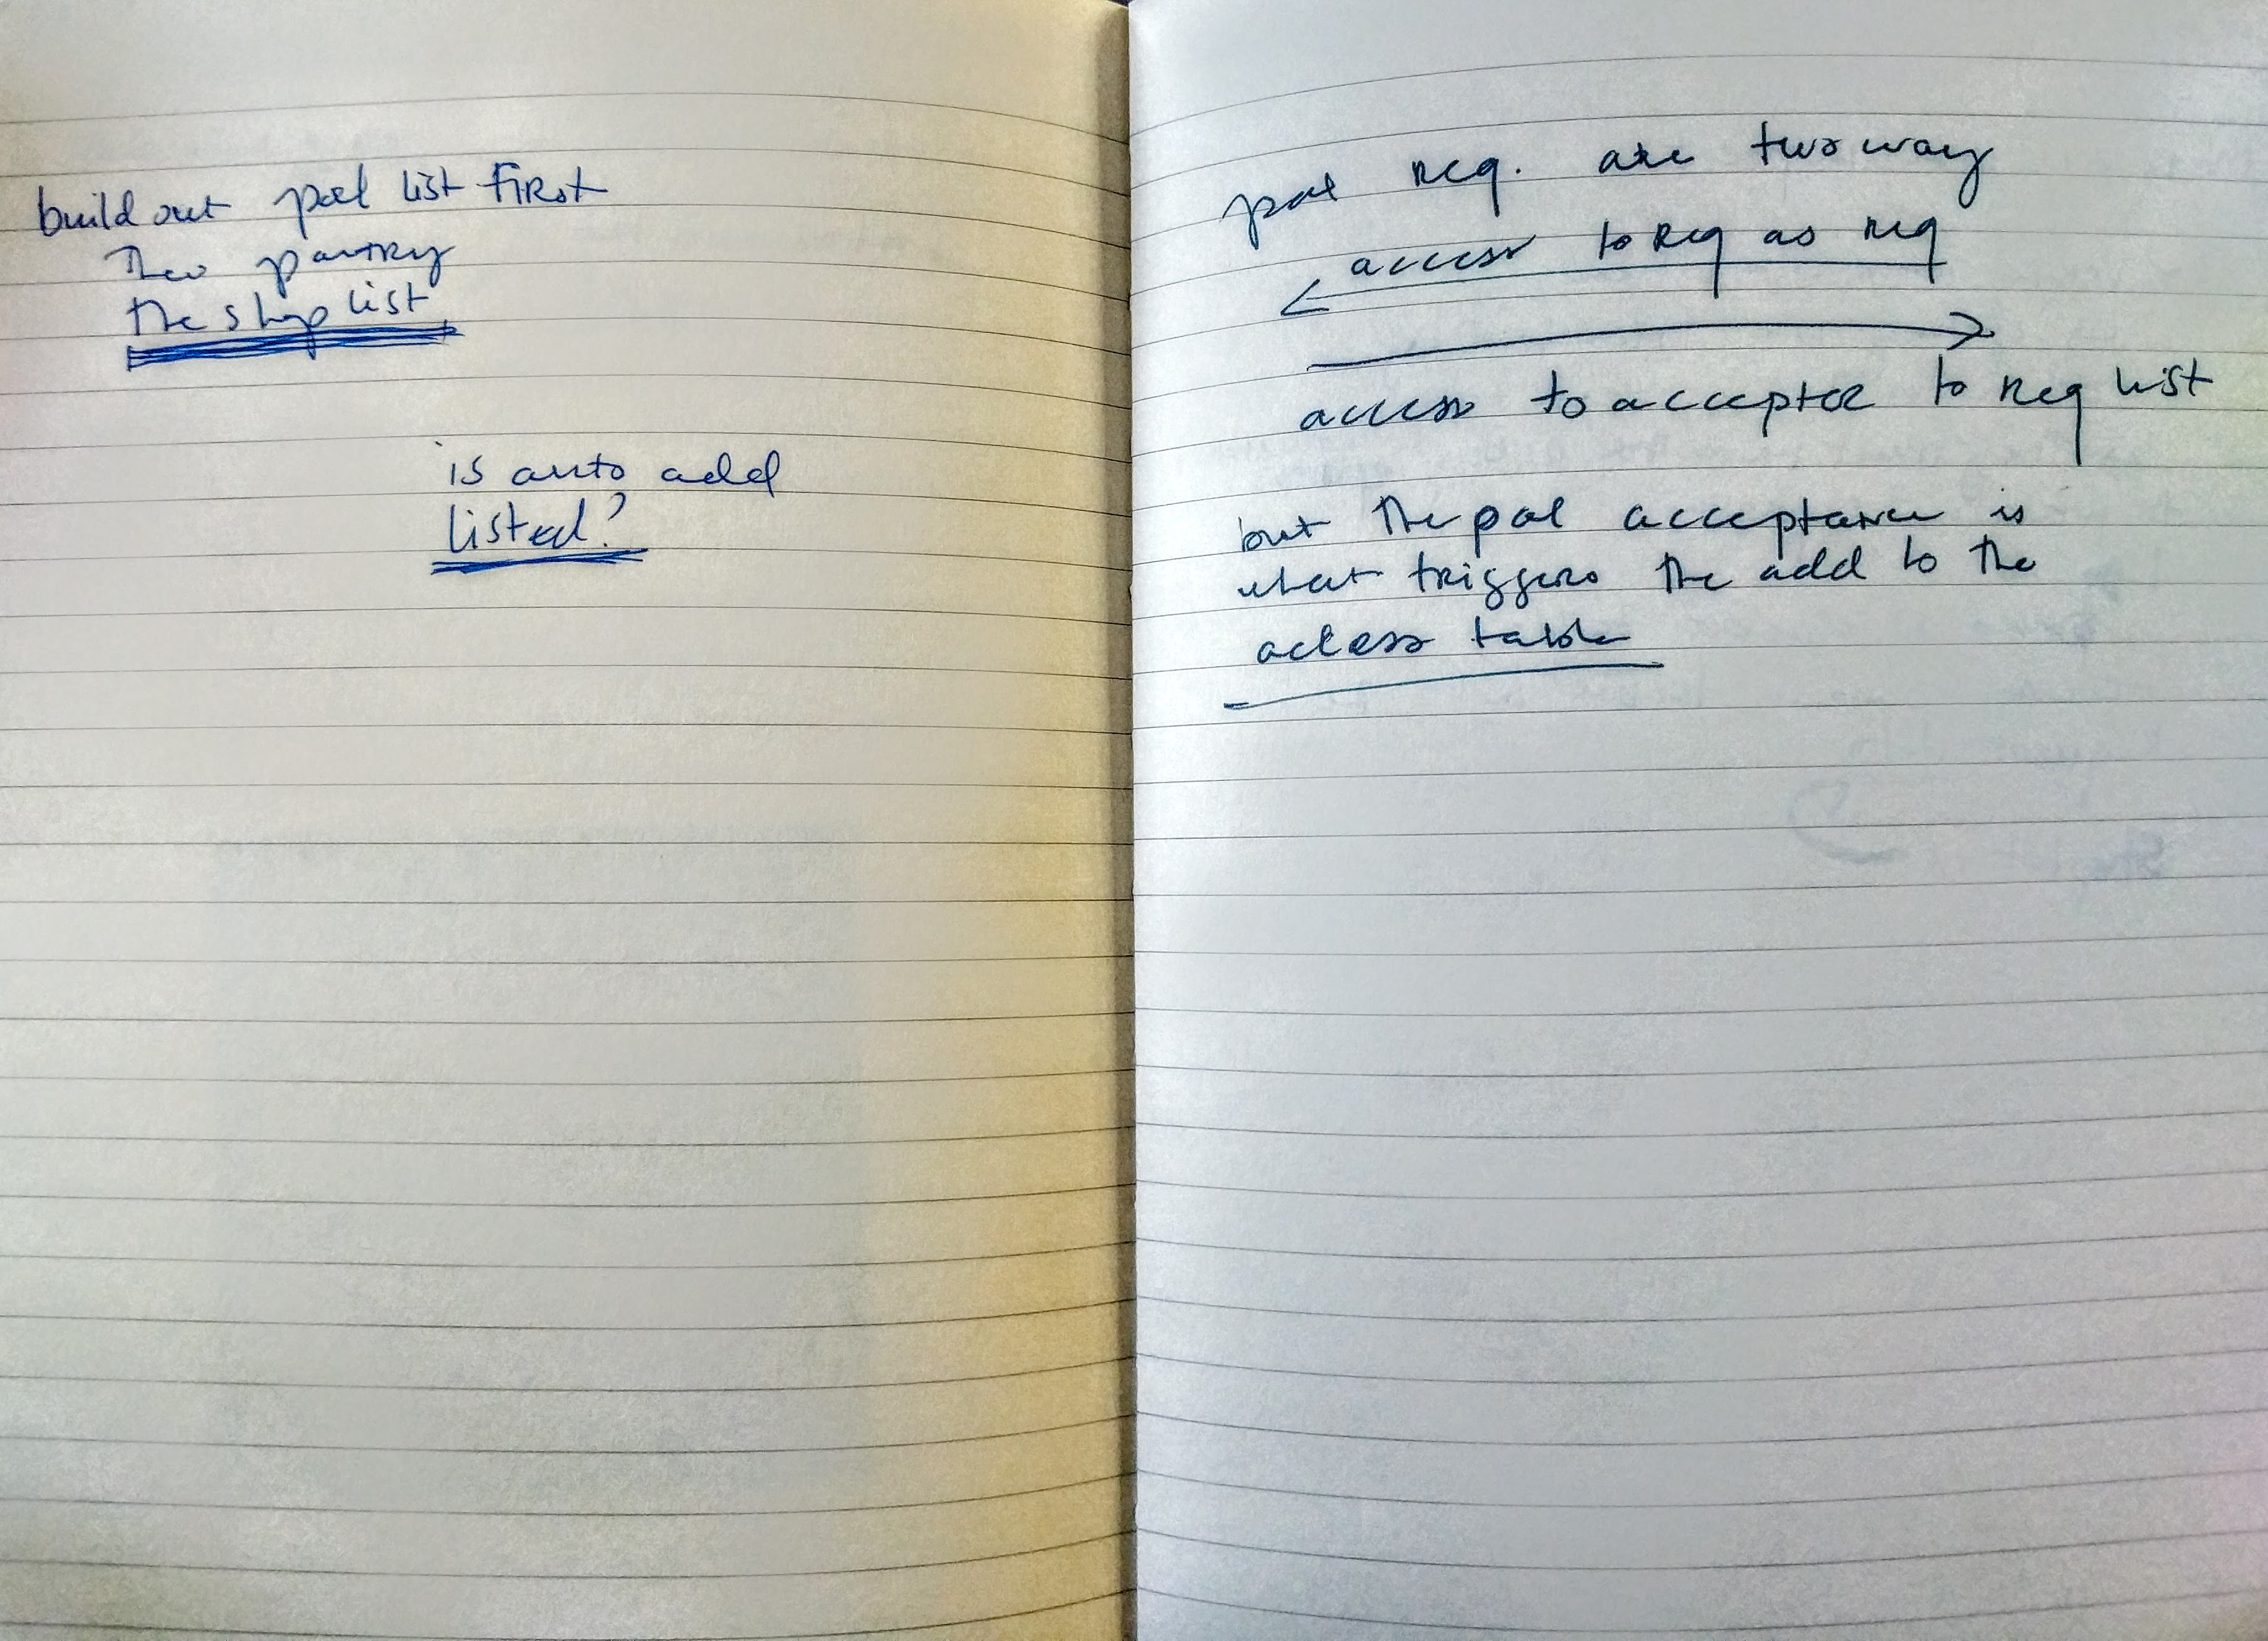 build out pal list first
then pantry
the shop list
is auto add
listed?
pal req. are two way
access to req as req
access to acceptor to req list
but the pal acceptance is
what triggers the add to the
access table